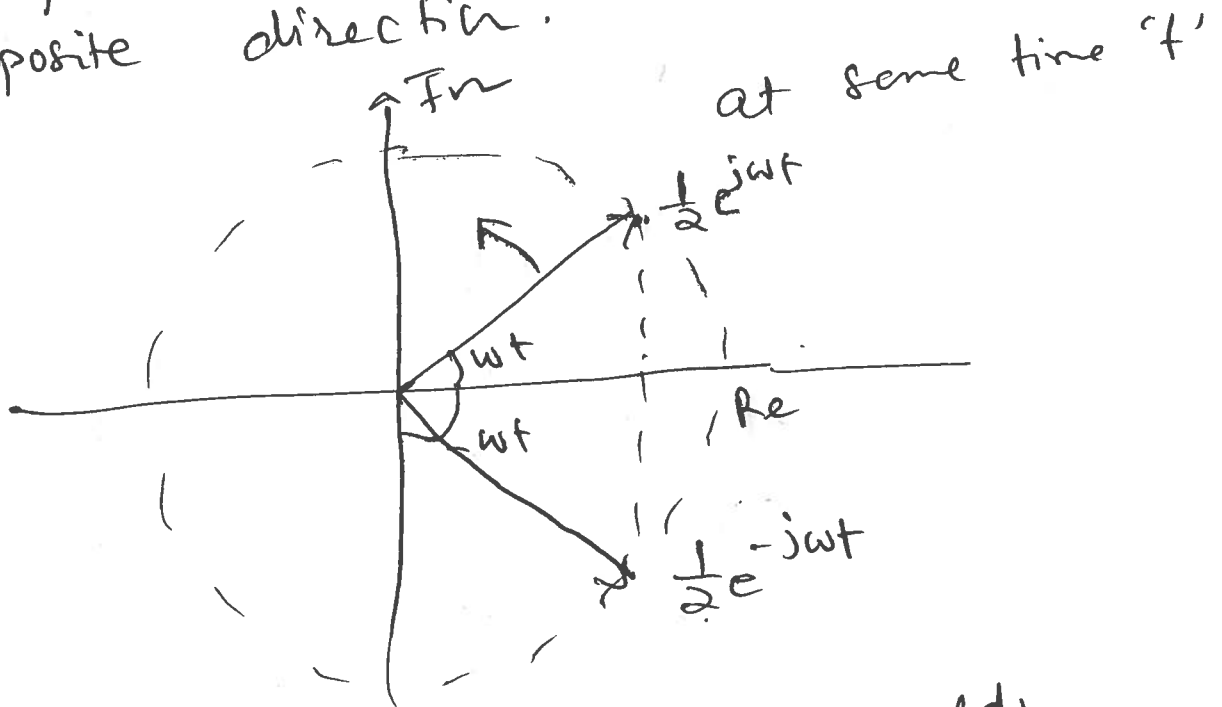 posite direction.
at same time 't'
Im
1/2 e^jωt
ωt
Re
ωt
1/2 e^-jωt